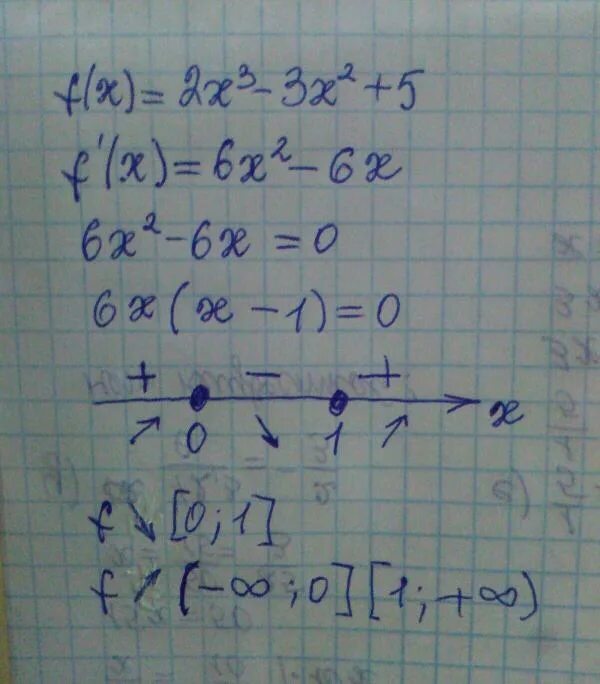 f(x) = 2x³ - 3x² + 5
f'(x) = 6x² - 6x
6x² - 6x = 0
6x(x - 1) = 0
+ - +
↗ 0 ↘ 1 ↗ x
f ↘ [0; 1]
f ↗ (-∞; 0] [1; +∞)